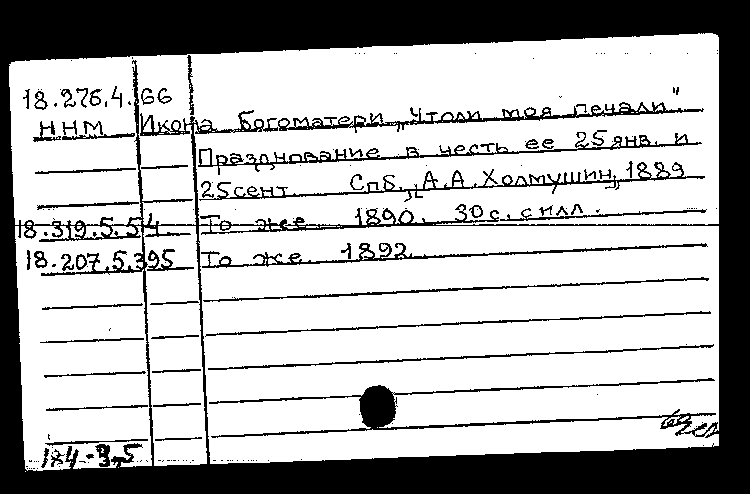 18.276.4.66
ННМ Икона Богоматери „Утоли моя печали".
Празднование в честь ее 25 янв. и
25 сент. Спб., „А.А. Холмушин", 1889
18.319.5.54 То же 1890. 30 с. с илл.
18.207.5.395 То же. 1892.
184-3,5